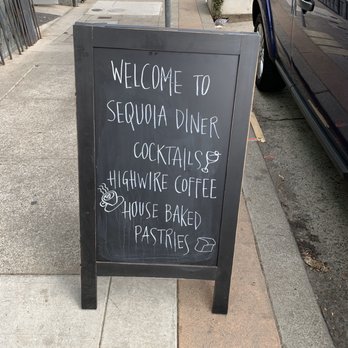 WELCOME TO
SEQUOIA DINER
COCKTAILS
HIGHWIRE COFFEE
HOUSE BAKED
PASTRIES